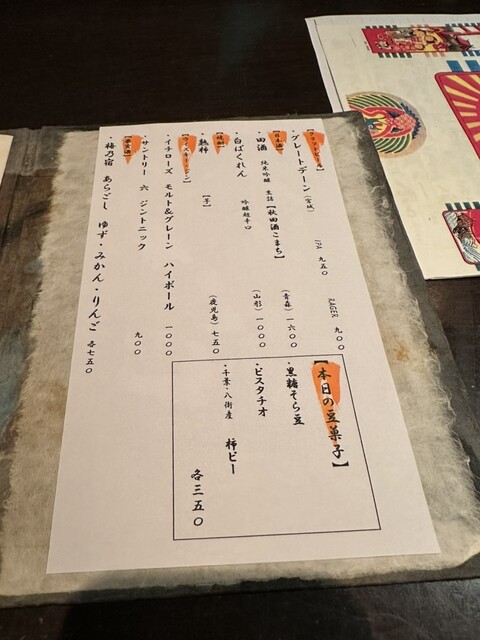 【クラフトビール】
・グレートデーン（宮城） IPA 九五〇 LAGER 九〇〇
【日本酒】
・田酒 純米吟醸 生詰【秋田酒こまち】 （青森）一六〇〇
・白ばくれん 吟醸超辛口 （山形）一〇〇〇
【焼酎】
・熟柿 【芋】 （鹿児島）七五〇
【ウイスキー・ジン】
・イチローズ モルト&グレーン ハイボール 一〇〇〇
・サントリー 六 ジントニック 九〇〇
【果実酒】
・梅乃宿 あらごし ゆず・みかん・りんご 各七五〇
【本日の豆菓子】
・黒糖そら豆
・ピスタチオ
・千葉・八街産 柿ピー
各三五〇